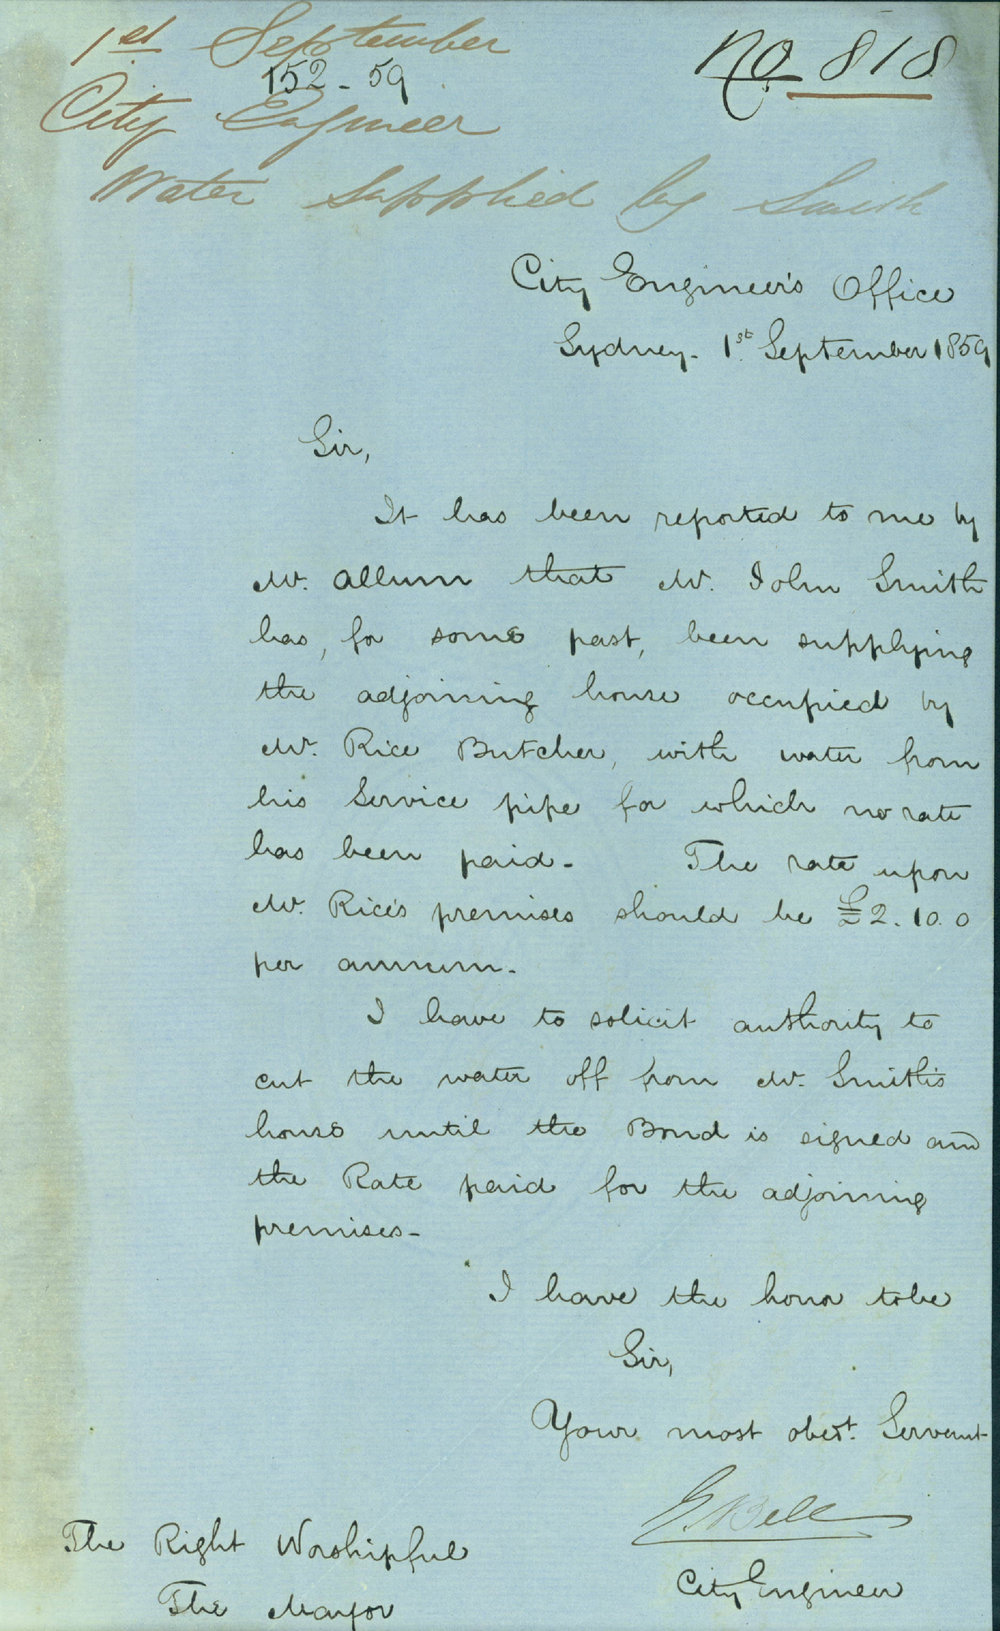 1st September
No. 818
152-59
City Engineer
Water Supplied by Smith
City Engineer's Office
Sydney. 1st September 1859
Sir,
It has been reported to me by
Mr. Allum that Mr. John Smith
has, for some past, been supplying
the adjoining house occupied by
Mr. Rice Butcher, with water from
his Service pipe for which no rate
has been paid - The rate upon
Mr. Rice's premises should be £2.10.0
per annum.
I have to solicit authority to
cut the water off from Mr. Smith's
house until the Bond is signed and
the Rate paid for the adjoining
premises -
I have the honor to be
Sir,
Your most obedt. Servant
E. Bell
City Engineer
The Right Worshipful
The Mayor